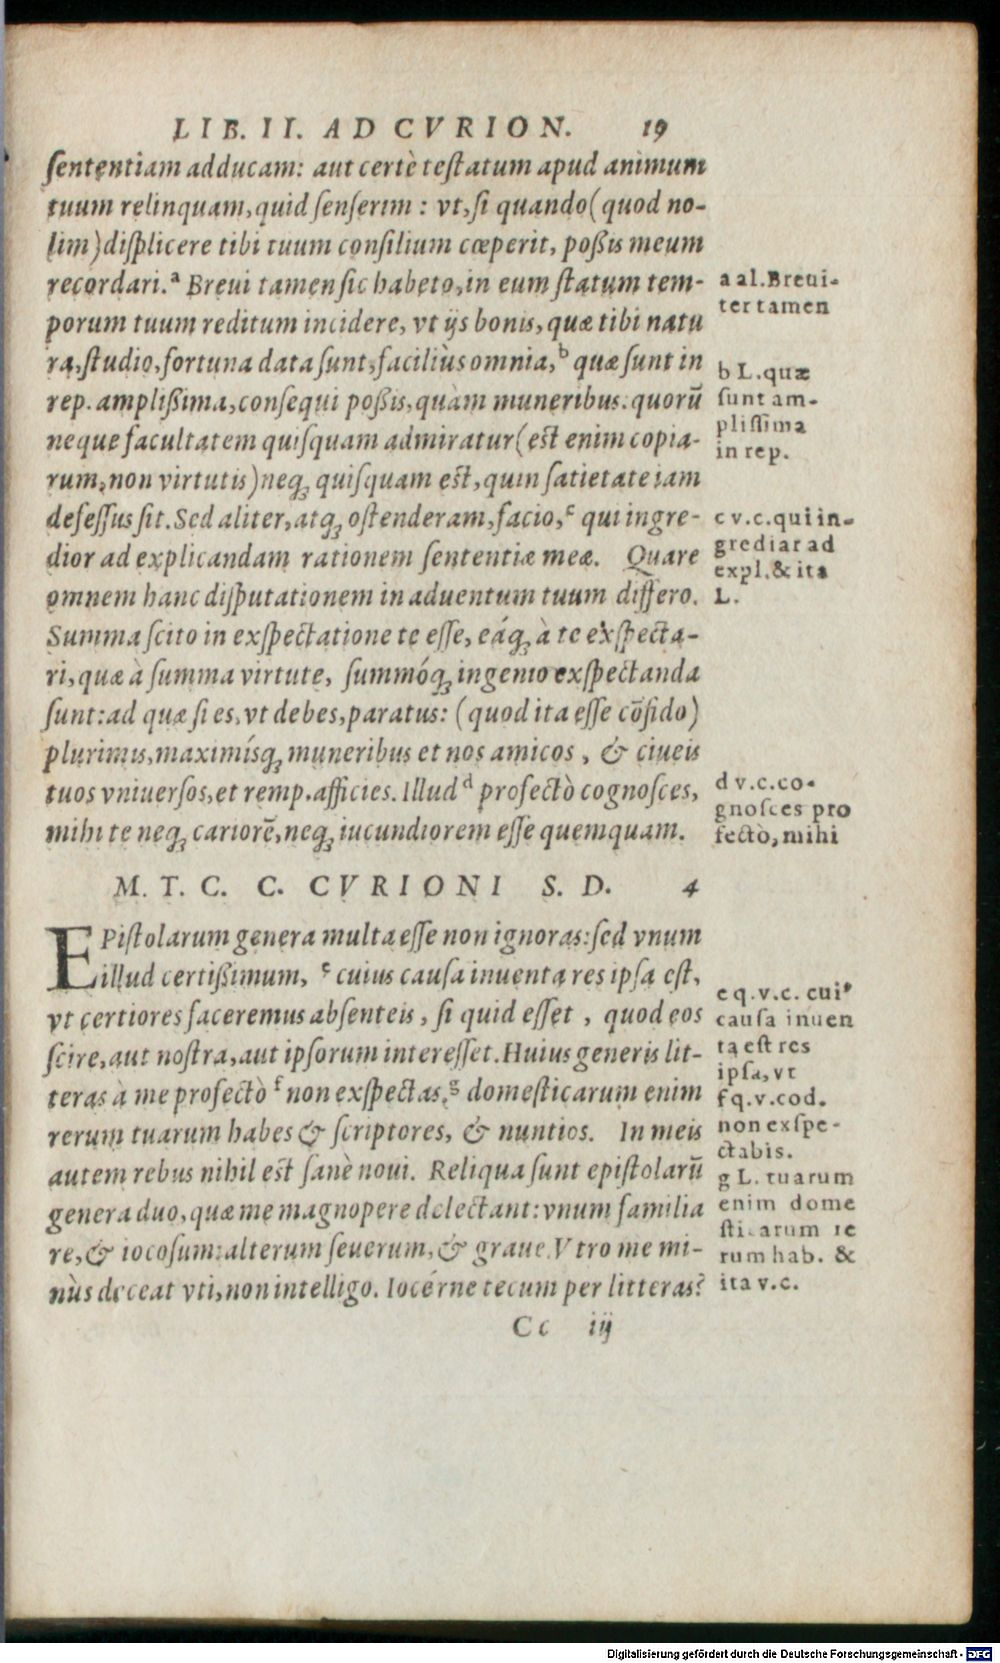 LIB. II. AD CVRION. 19
ſententiam adducam: aut certè teſtatum apud animum
tuum relinquam, quid ſenſerim: vt, ſi quando (quod no-
lim) diſplicere tibi tuum conſilium cœperit, poßis meum
recordari.ᵃ Breui tamen ſic habeto, in eum ſtatum tem-
porum tuum reditum incidere, vt ijs bonis, quæ tibi natu
ra, ſtudio, fortuna data ſunt, faciliùs omnia, ᵇ quæ ſunt in
rep. amplißima, conſequi poßis, quàm muneribus. quorū
neque facultatem quiſquam admiratur (eſt enim copia-
rum, non virtutis) neq; quiſquam eſt, quin ſatietate iam
defeſſus ſit. Sed aliter, atq; oſtenderam, facio, ᶜ qui ingre-
dior ad explicandam rationem ſententiæ meæ. Quare
omnem hanc diſputationem in aduentum tuum differo.
Summa ſcito in exſpectatione te eſſe, eáq; à te exſpecta-
ri, quæ à ſumma virtute, ſummóq; ingenio exſpectanda
ſunt: ad quæ ſi es, vt debes, paratus: (quod ita eſſe cōfido)
plurimis, maximíſq; muneribus et nos amicos, & ciueis
tuos vniuerſos, et remp. afficies. Illud ᵈ profectò cognoſces,
mihi te neq; cariorē, neq; iucundiorem eſſe quemquam.
a al. Breui-
ter tamen
b L. quæ
ſunt am-
pliſſima
in rep.
c v.c. qui in-
grediar ad
expl. & ita
L.
d v.c. co-
gnoſces pro
fectò, mihi
M. T. C. C. CVRIONI S. D. 4
EPiſtolarum genera multa eſſe non ignoras: ſed vnum
illud certißimum, ᵉ cuius cauſa inuenta res ipſa eſt,
vt certiores faceremus abſenteis, ſi quid eſſet, quod eos
ſcire, aut noſtra, aut ipſorum intereſſet. Huius generis lit-
teras à me profectò ᶠ non exſpectas, ᵍ domeſticarum enim
rerum tuarum habes & ſcriptores, & nuntios. In meis
autem rebus nihil eſt ſanè noui. Reliqua ſunt epiſtolarū
genera duo, quæ me magnopere delectant: vnum familia
re, & iocoſum: alterum ſeuerum, & graue. Vtro me mi-
nùs deceat vti, non intelligo. Iocérne tecum per litteras?
e q.v.c. cuiꝰ
cauſa inuen
ta eſt res
ipſa, vt
f q.v.cod.
non exſpe-
ctabis.
g L. tuarum
enim dome
ſticarum re
rum hab. &
ita v.c.
Cc iij
Digitalisierung gefördert durch die Deutsche Forschungsgemeinschaft - DFG